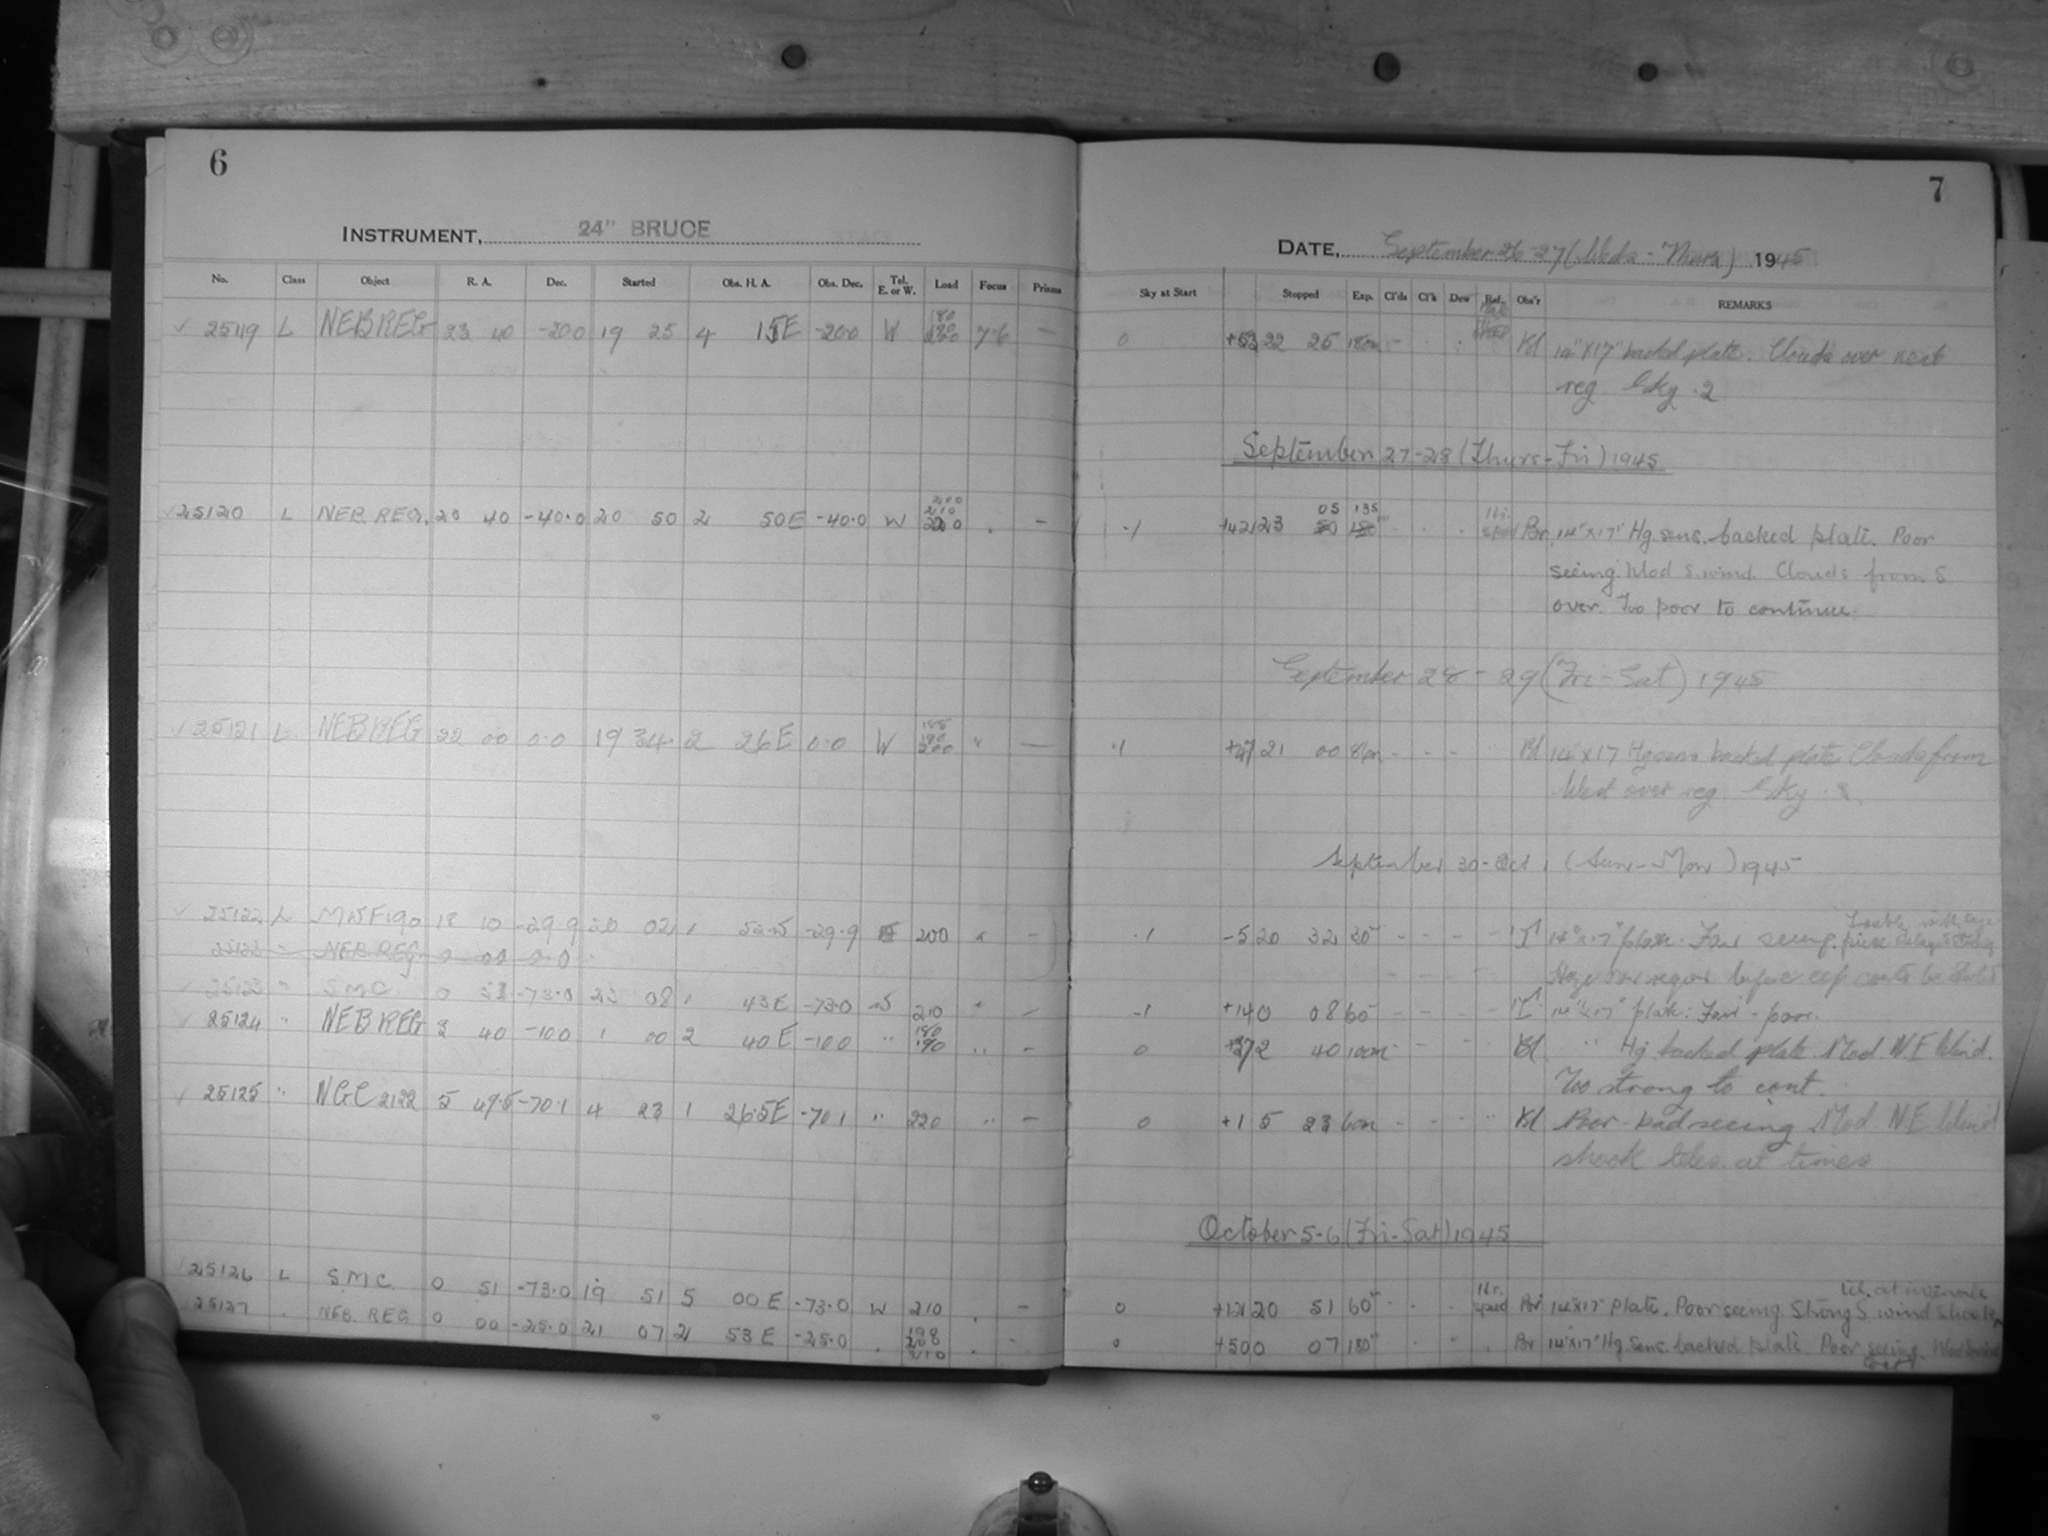 6
INSTRUMENT, 24" BRUCE
No. Class Object R. A. Dec. Started Obs. H. A. Obs. Dec. Tel. E. or W. Load Focus Prisms
25119 L NEB REG 23 40 -20.0 19 25 4 15E -20.0 W 180 190 200 7.6 —
25120 L NEB. REG. 20 40 -40.0 20 50 2 50E -40.0 W 200 210 220 . —
25121 L NEB REG 22 00 0.0 19 34 2 26E 0.0 W 185 190 200 " —
25122 L 18 10 -29.9 20 02 1 52.5 -29.9 200 " —
25123 " NEB. REG. 0 00 0.0
25123 " SMC 0 51 -73.0 23 08 1 43E -73.0 210 " —
25124 " NEB REG 3 40 -10.0 1 00 2 40E -10.0 " 180 190 " —
25125 " NGC 2122 5 49.5 -70.1 4 23 1 26.5E -70.1 " 220 " —
25126 L SMC. 0 51 -73.0 19 51 5 00E -73.0 W 210 . —
25127 . NEB. REG 0 00 -25.0 21 07 2 53E -25.0 . 198 208 210 . -
7
DATE, September 26-27 (Weds - Thurs) 1945
Sky at Start Stopped Exp. Cl'ds Cl'k Dew Ref. Obs'r REMARKS
0 +53 22 25 180m - . . Bl 14"x17" backed plate. Clouds over next
reg Sky .2
September 27-28 (Thurs-Fri) 1945
.1 +42 23 05 50 135 180 . . . speed Br. 14"x17" Hg. sens. backed plate. Poor
seeing. Mod S. wind. Clouds from S
over. Too poor to continue.
September 28 - 29 (Fri-Sat) 1945
.1 21 00 - - - " Bl 14"x17 Hg sens backed plate Clouds from
West over reg. Sky
September 30-Oct 1 (Sun-Mon) 1945
.1 -5 20 32 30m - - - - 14"x17" plate. Fair seeing. Trouble with
Haze over region before exp
.1 +14 0 08 60 - - - - 14"x17" plate: Fair - poor.
0 +37 2 40 100m - - - - Bl " Hg backed plate. Mod N.E Wind.
Too strong to cont.
0 +1 5 23 60m - - - " Bl Poor - bad seeing Mod N.E Wind
shook teles. at times
October 5-6 (Fri-Sat) 1945
0 +121 20 51 60m . . . speed Br 14"x17" plate. Poor seeing. Strong S. wind shook tel. at intervals
0 +50 0 07 180m . . . Br 14"x17" Hg. Sens. backed plate. Poor seeing.